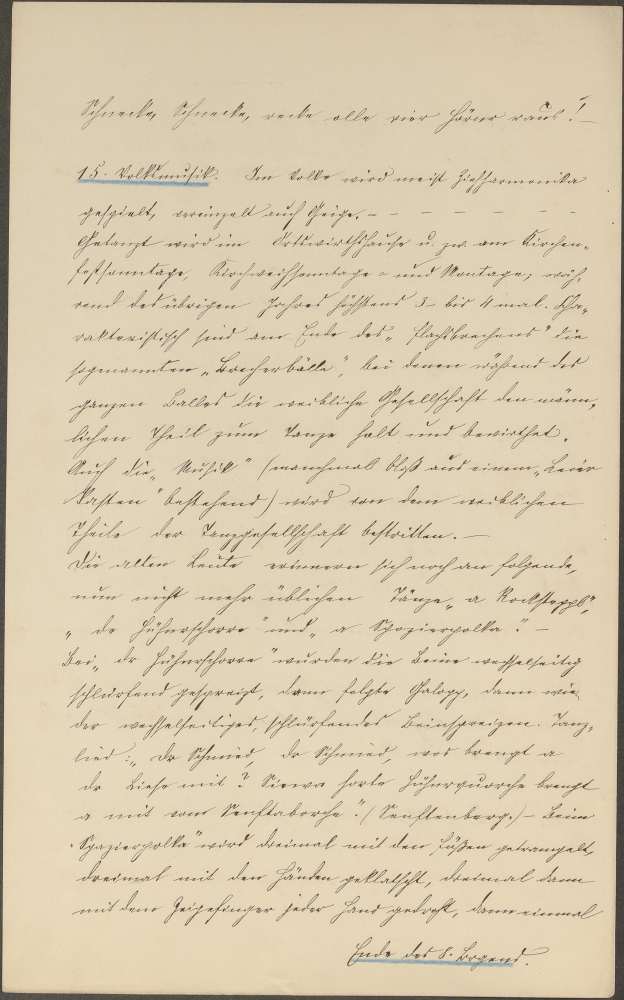 Schnecke, Schnecke, recke alle vier Hörner raus! –
15. Volksmusik. Im Volke wird meist Ziehharmonika
gespielt, vereinzelt auch Geige. – – – – – – –
Getanzt wird im Ortswirthshause u. zw. am Kirchen-
festsonntage, Kirchweihsonntage- und Montage; wäh-
rend des übrigen Jahres höchstens 3 bis 4 mal. Cha-
rakteristisch sind am Ende des „Flachsbrechens" die
sogenannten „Brecherbälle", bei denen während des
ganzen Balles die weibliche Gesellschaft den männ-
lichen Theil zum Tanze holt und bewirthet.
Auch die „Musik" (manchmal bloß aus einem „Leier-
kasten" bestehend) wird von dem weiblichen
Theile der Tanzgesellschaft bestritten. –
Die alten Leute erinnern sich noch an folgende,
nun nicht mehr üblichen Tänze „a Rockstappl",
„de Hühnrschorre" und „a Spazierpolka". –
Bei „dr Hühnrschorre" wurden die Beine wechselseitig
schlürfend gespreizt, dann folgte Galopp, dann wie-
der wechselseitiges, schlürfendes Beinspreizen. Tanz-
lied: „Dr Schmied, dr Schmied, wos brengt a
dr Liese mit? Siewa horte Hühnerquorche brengt
a mit vom Senftaborche". (Senftenberg.) – Beim
„Spazierpolka" wird dreimal mit den Füßen getrampelt,
dreimal mit den Händen geklatscht, dreimal dann
mit dem Zeigefinger jeder Hand gedroht, dann einmal
Ende des 8. Bogens.